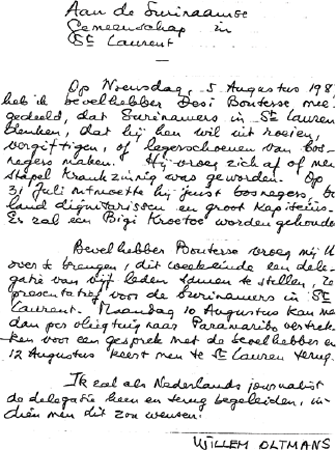 Aan de Surinaamse
Gemeenschap in
St Laurent
Op Woensdag, 5 Augustus 198
heb ik bevelhebber Desi Bouterse mee
gedeeld, dat Surinamers in St Lauren
denken, dat hij hen wil uit roeien,
vergiftigen, of legerschoenen van bos-
negers maken. Hij vroeg zich af of men
stapel krankzinnig was geworden. Op
31 Juli ontmoette hij juist bosnegers, bo
land dignitarissen en groot Kapiteins.
Er zal een Bigi Kroetoe worden gehoude
Bevelhebber Bouterse vroeg mij U
over te brengen, dit weekeinde een dele-
gatie van vijf leden samen te stellen,
presentatief voor de Surinamers in St
Laurent. Maandag 10 Augustus kan me
dan per vliegtuig naar Paramaribo vertrek-
ken voor een gesprek met de bevelhebber en
12 Augustus keert men te St Lauren terug.
Ik zal als Nederlands journalist
de delegatie heen en terug begeleiden, in-
dien men dit zou wensen.
WILLEM OLTMANS